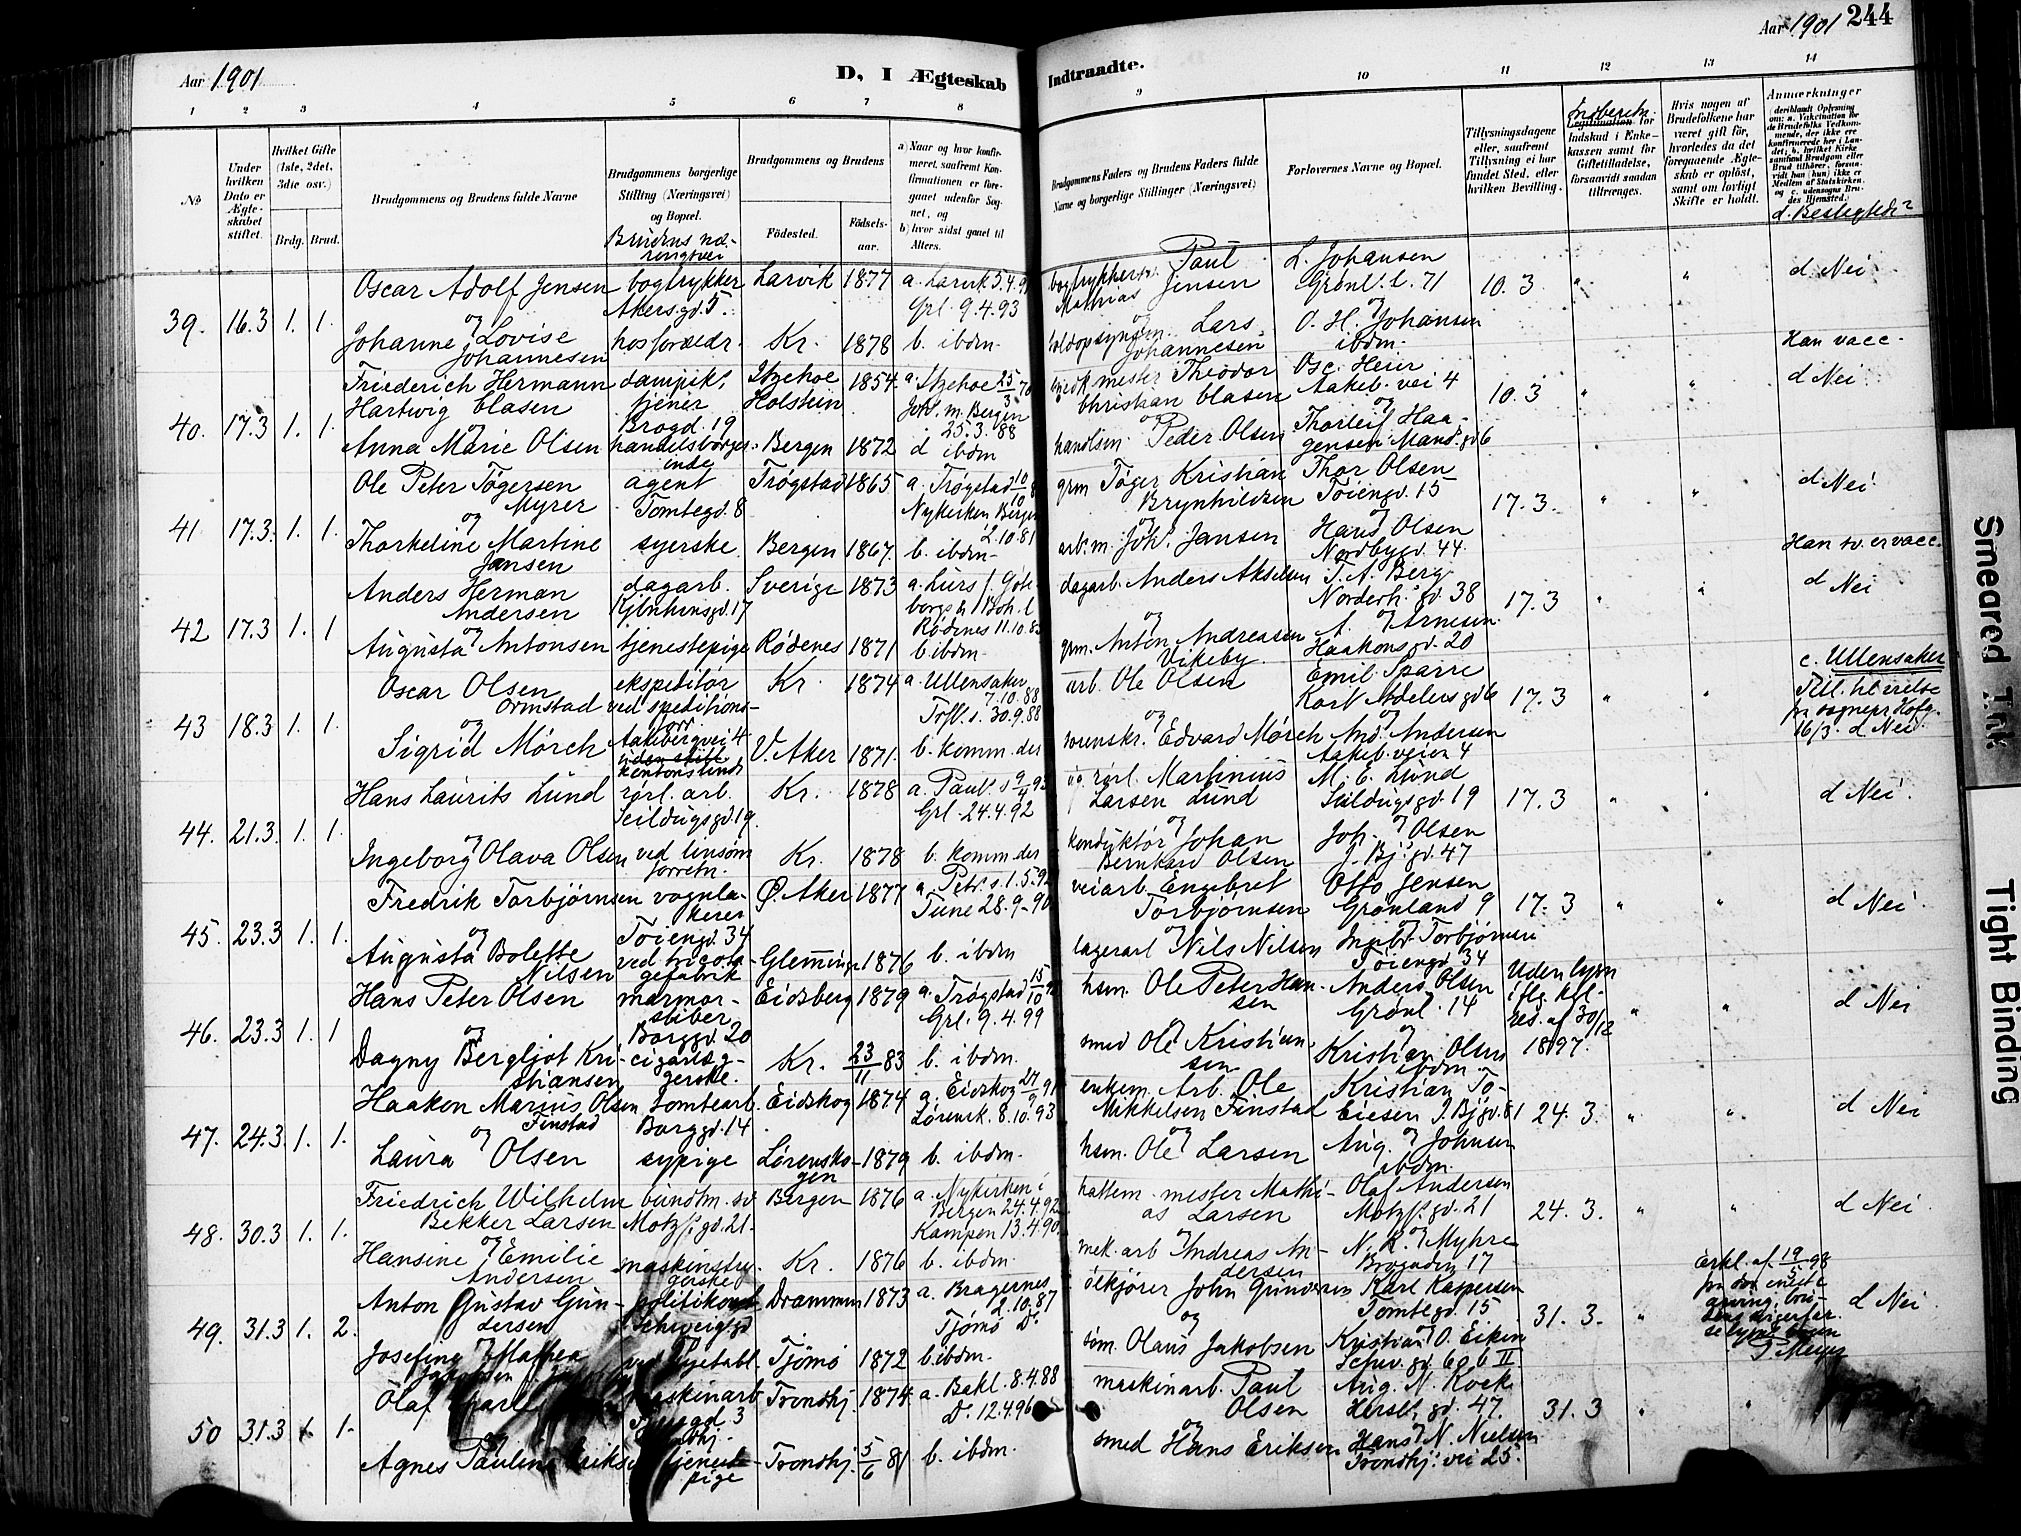 Aar 1901
D, I Ægteskab
1 2 3 4 5 6 7 8
№
Under hvilken Dato er Ægteskabet stiftet.
Hvilket Gifte (1ste, 2det, 3die osv.)
Brdg. Brud.
Brudgommens og Brudens fulde Navne
Brudgommens borgerlige Stilling (Næringsvei) og Bopæl.
Brudens næringsvei
Brudgommens og Brudens
Fødested.
Fødselsaar.
a) Naar og hvor konfirmeret, saafremt Konfirmationen er foregaaet udenfor Sognet, og
b) hvor sidst gaaet til Alters.
39. 16.3 1. 1.
Oscar Adolf Jensen bogtrykker Larvik 1877 a. Larvik 5.4.9
Akersgd. 5. Grl. 9.4.93
og
Johanne Lovise hos forældr. Kr. 1878 b. ibdm.
Johannesen
40. 17.3 1. 1.
Friederich Hermann dampsk. Itzehoe 1854. a. Itzehoe 25/3 70
Hartwig Clasen tjener Holstein Joh. m. Bergen
Brogd. 19 25.3.88
og
Anna Marie Olsen handelsborger- Bergen 1872 d ibdm
inde
41 17.3. 1. 1.
Ole Peter Tøgersen agent Trøgstad 1865 a. Trøgstad 10/10
Myrer Tomtegd. 8 Nykirken Bergen
og 2.10.81
Thorkeline Martine syerske Bergen 1867. b. ibdm.
Jansen
42 17.3 1. 1
Anders Herman dagarb. Sverige 1873 a. Lurs / Gøte-
Andersen Kjbnhvnsgd. 17 borgs h / Boh. l
og Rødenes 11.10.8
Augusta Antonsen tjenestepige Rødenes 1871 b. ibdm.
43 18.3 1. 1.
Oscar Olsen ekspeditør Kr. 1874 a. Ullensaker
Ormstad ved speditions- 7.10.88
og forr. Trfl. s. 30.9.88
Sigrid Mørch Aakebergvei 4 V. Aker 1871. b. komm. der
kontoristinde
44. 21.3. 1. 1.
Hans Laurits Lund rørl. arb. Kr. 1878 a. Paul. s 9/4 93
Seildugsgd. 19. Grl. 24.4.92
og
Ingeborg Olava Olsen ved linsøm Kr. 1878 b. komm. der
forretn.
45. 23.3 1. 1.
Fredrik Torbjørnsen vognla- Ø. Aker 1877 a. Petr. s. 1.5.92
kerer Tune 28.9-90
og Tøiengd. 34
Augusta Bolette ved tricota- Glemminge 1876 b. ibdm
Nilsen gefabrik
46. 23.3 1. 1
Hans Peter Olsen marmor- Eidsberg 1879 a. Trøgstad 15/10
sliber Grl. 9.4.99
og Borggd. 20
Dagny Bergljot Kri- cigaræg- Kr. 23/11 83 b. ibdm.
stiansen gerske.
47. 24.3. 1. 1.
Haakon Marius Olsen tomtearb. Eidskog 1874 a. Eidskog 27/9 91
Finstad Borggd. 14 Lørensk. 8.10.93
og
Laura Olsen sypige Lørensko- 1879 b. ibdm.
gen
48. 30.3 1. 1.
Friedrich Wilhelm bundtm. sv Bergen 1876 a. Nykirken i
Bekker Larsen Motzf. gd. 21. Bergen 24.4.92
og Kampen 13.4.90
Hansine Emilie maskinstry- Kr. 1876 b. ibdm.
Andersen gerske
49. 31.3 1. 2.
Anton Gustav Gun- politikonst. Drammen 1873 a. Bragernes
dersen Schweigd 2.10.87
og Tjømø d.
Josefine Mathea Tjømø 1872 b. ibdm.
50 31.3 1. 1.
Olaf maskinarb Trondhj. 1874. a. Bakl. 8.4.88
3 D. 12.4.96
og
Agnes Pauline Eriksen tjeneste- Trondhj. 5/6 81 b. ibdm.
pige
Aar 1901 244
Indtraadte.
9 10 11 12 13 14
Brudgommens Faders og Brudens Faders fulde Navne og borgerlige Stillinger (Næringsvei)
Forlovernes Navne og Bopæl.
Tillysningsdagene eller, saafremt Tillysning ei har fundet Sted, efter hvilken Bevilling.
Legitimation for Indskud i Enkekassen samt for Giftetilladelse, forsaavidt saadan tiltrænges.
Hvis nogen af Brudefolkene har været gift før, hvorledes da det foregaaende Ægteskab er opløst, samt om lovligt Skifte er holdt.
Anmerkninger
(deriblandt Oplysning om: a. Vakcination for de Brudefolks Vedkommende, der ikke ere konfirmerede her i Landet; b. hvilket Kirkesamfund Brudgom eller Brud tilhører, forsaavidt han (hun) ikke er Medlem af Statskirken, og c. udensogns Brudes Hjemsted.)
d. Beslegtede?
bogtrykker Paul L. Johansen
Mathias Jensen Grønl. l. 71 10.3 " " d Nei
og og
Lars O. H. Johansen
Johannesen ibdm. Han vacc.
mester Theodor Osc. Heier d Nei
Christian Clasen Aakeb. vei 4 10.3 " "
og og
handlsm. Peder Olsen Thorleif Haa-
gensen Mand. gd 6
grm Tøger Kristian Thor Olsen d Nei
Brynhildsen Tøiengd. 15 17.3. " "
og og
arb. m. Joh. Jansen Hans Olsen
Nordbygd. 44. Han sv. er vacc.
dagarb. Anders Akselsen T. A. Berg d Nei
Norderh. gd 38 17.3 " "
og og
grm. Anton Andreasen A. Arnesen
Vikeby. Haakonsgd. 20
arb. Ole Olsen Emil Sparre c. Ullensaker
Karl Adelers gd 6 17.3 " "
og og 16/3. d Nei
sorenskr. Edvard Mørch And. Andersen
Aakeb. veien 4
rørl. Martinius M. E. Lund
Larsen Lund Seildugsgd. 19 17.3 " " d Nei.
og og
konduktør Johan Joh. Olsen
Bernhard Olsen J. Bj. gd. 47
veiarb. Engebret Otto Jensen
Torbjørnsen Grønland 9 17.3 " " d Nei.
og og
lagerarb Nils Nilsen Ingbr Torbjørnsen
Tøiengd 34
hsm. Ole Peter Han- Anders Olsen Uden lysn
sen Grønl. 14 iflg. kgl. " " d Nei
og og res. af 30/12
smed Ole Kristian- Kristian Olsen 1897.
sen ibdm.
enkem. Arb. Ole Kristian To-
Mikkelsen Finstad Eiesen J. Bj. gd. 81 24.3. " " d Nei
og og
hsm. Ole Larsen Aug. Johnsen
ibdm.
hattem. mester Mathi- Olaf Andersen
as Larsen Motzf. gd. 21 24.3. " " d Nei.
og og
mek. arb Andreas An- N. R. Myhre
dersen Brogaden 17
ølkjører John Gundersen Karl Kaspersen Erkl. af 19/5 98
Tomtegd. 15 31.3. " d Nei.
og og
søm. Olaus Jakobsen Kristian O. Eiken
Schw. gd. 6 II
maskinarb. Paul Aug. N. Kock
Olsen Hersl. gd. 47. 31.3 " "
og og
smed Hans Eriksen Hans N. Nielsen
Trondhj. vei 25.
Smeared Ink
Tight Binding